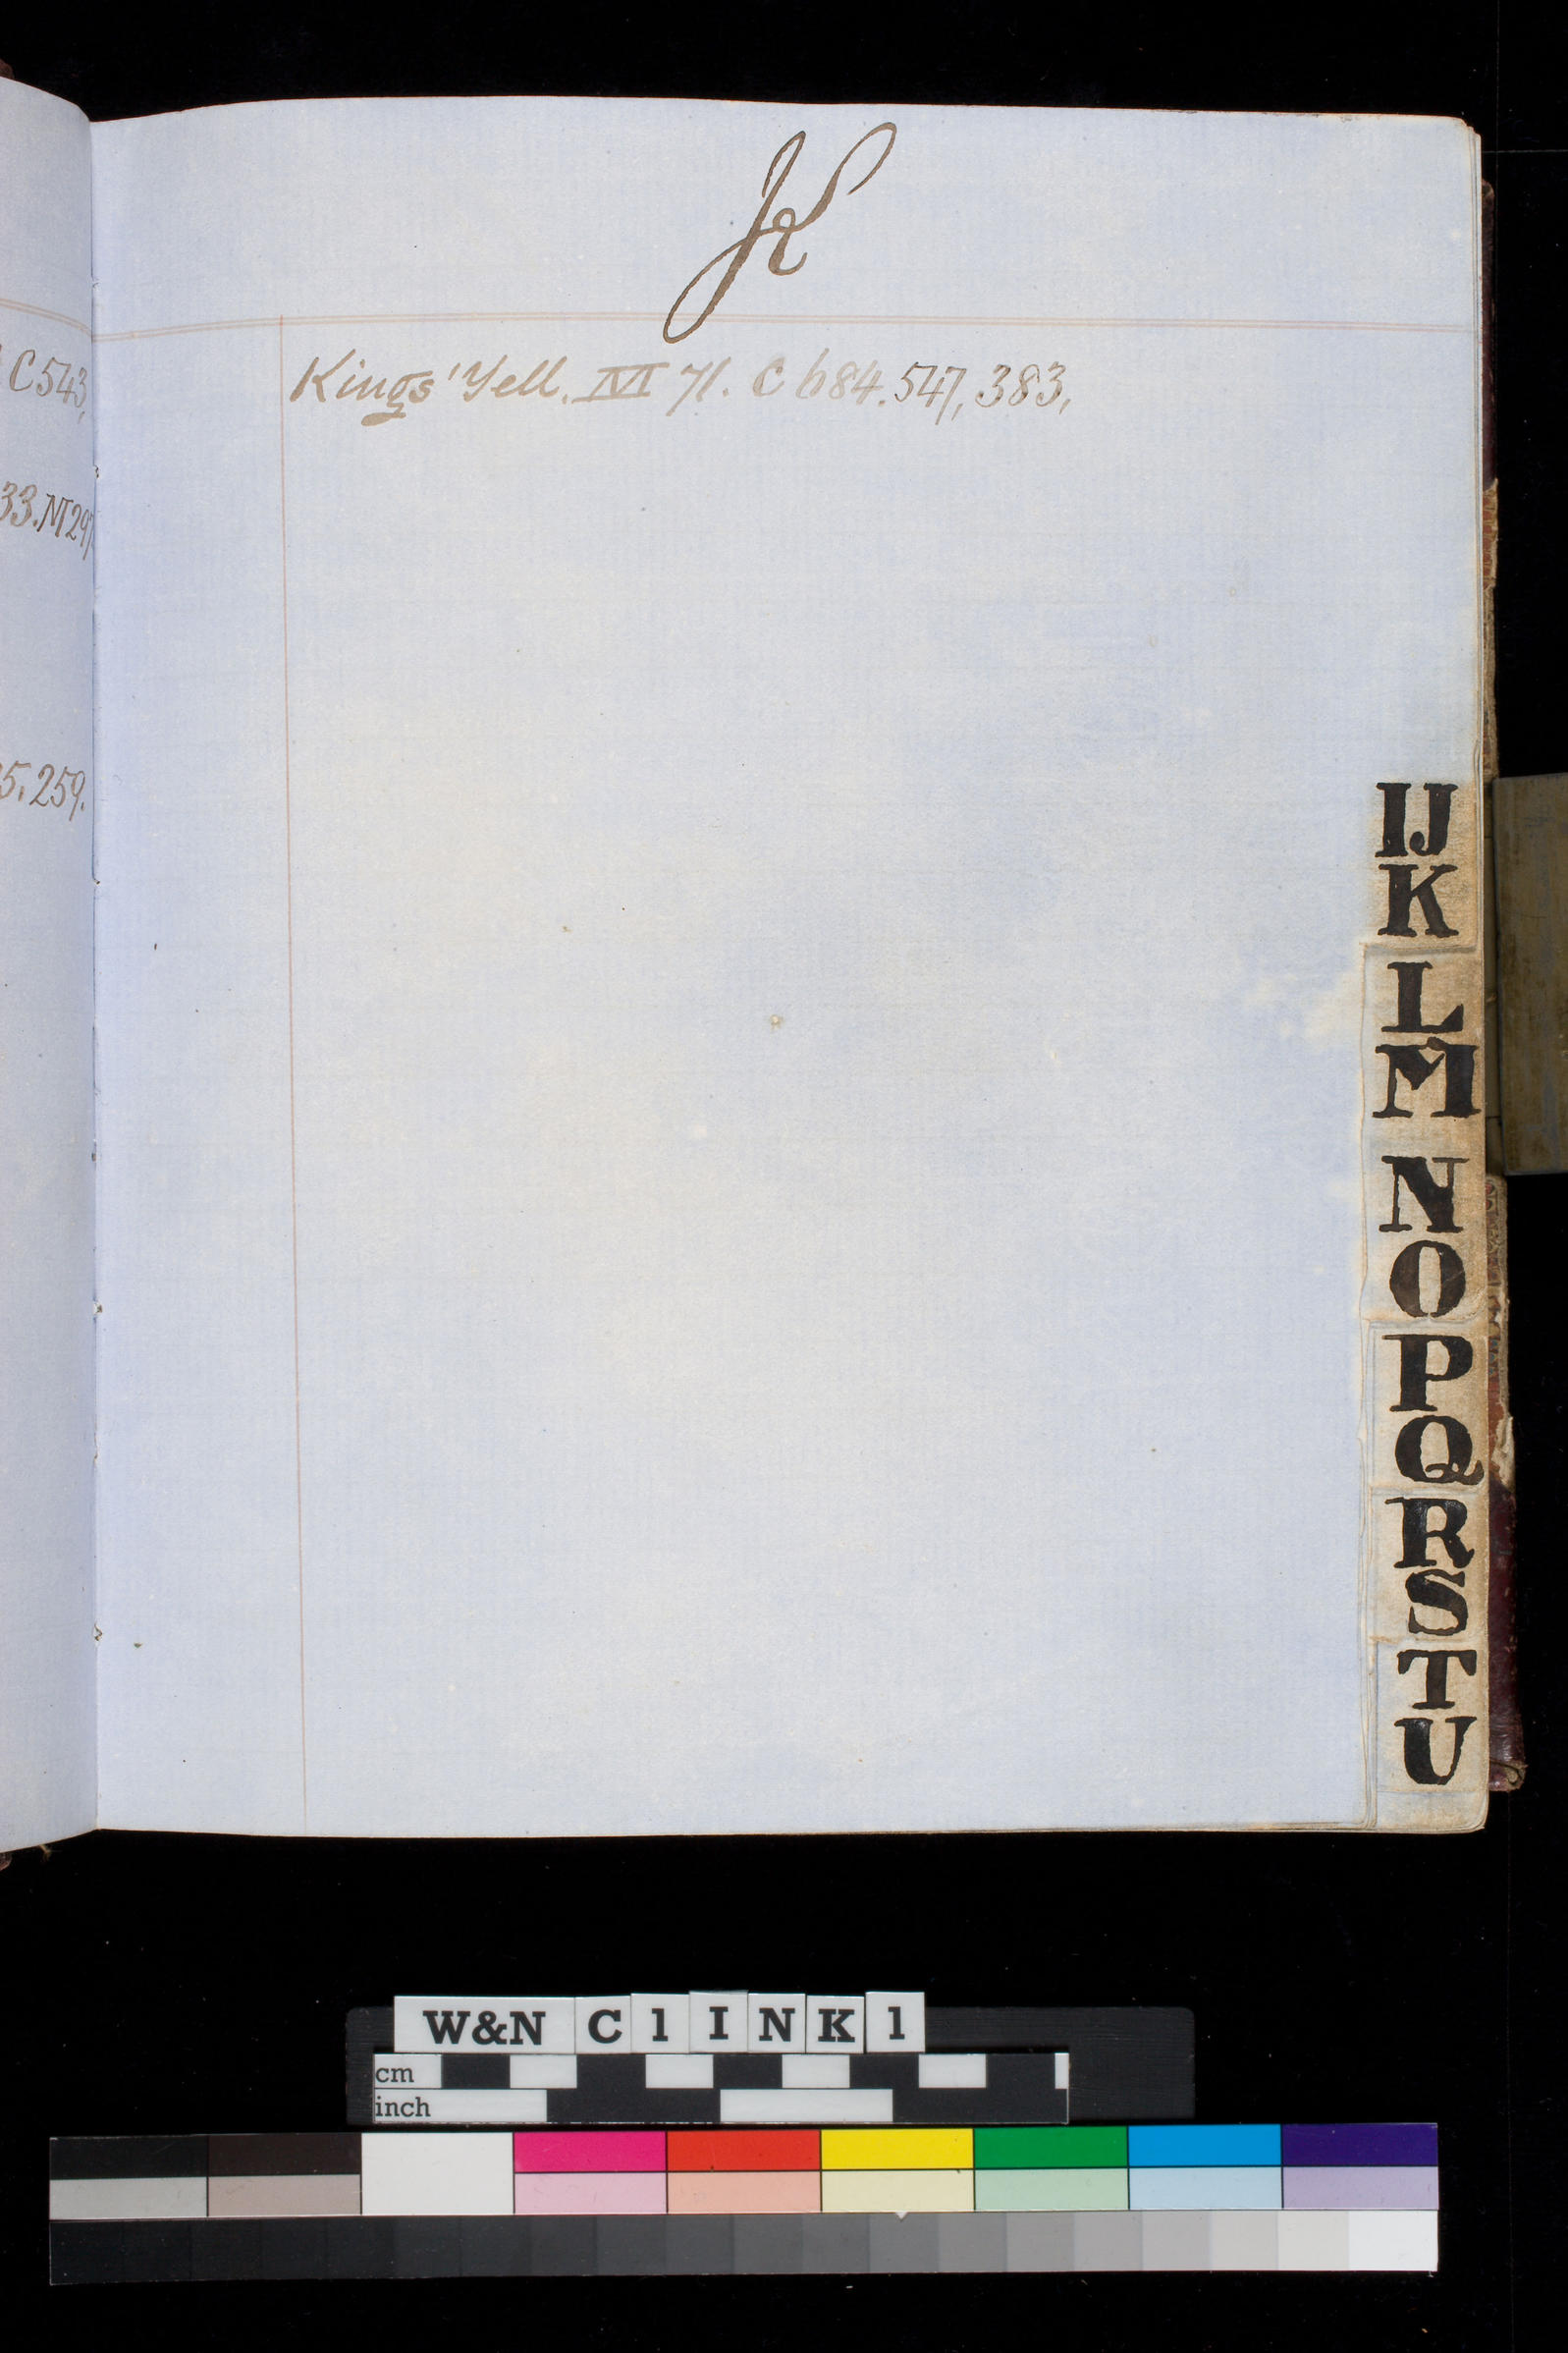 C 543,
33. M 297
5, 259.
K
Kings' Yell. M 71. C 684. 547, 383,
IJ
K
L
M
N
O
P
Q
R
S
T
U
W&N C 1 I N K 1
cm
inch